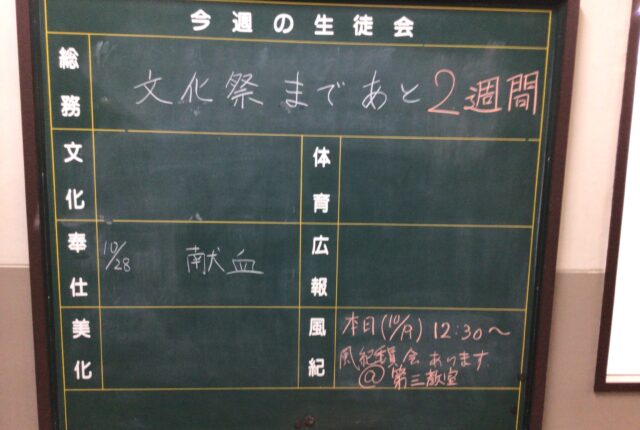 今週の生徒会
総務
文化祭まであと2週間
文化
体育
奉仕
10/28 献血
広報
美化
風紀
本日(10/19) 12:30〜
風紀委員会あります
@ 第三教室